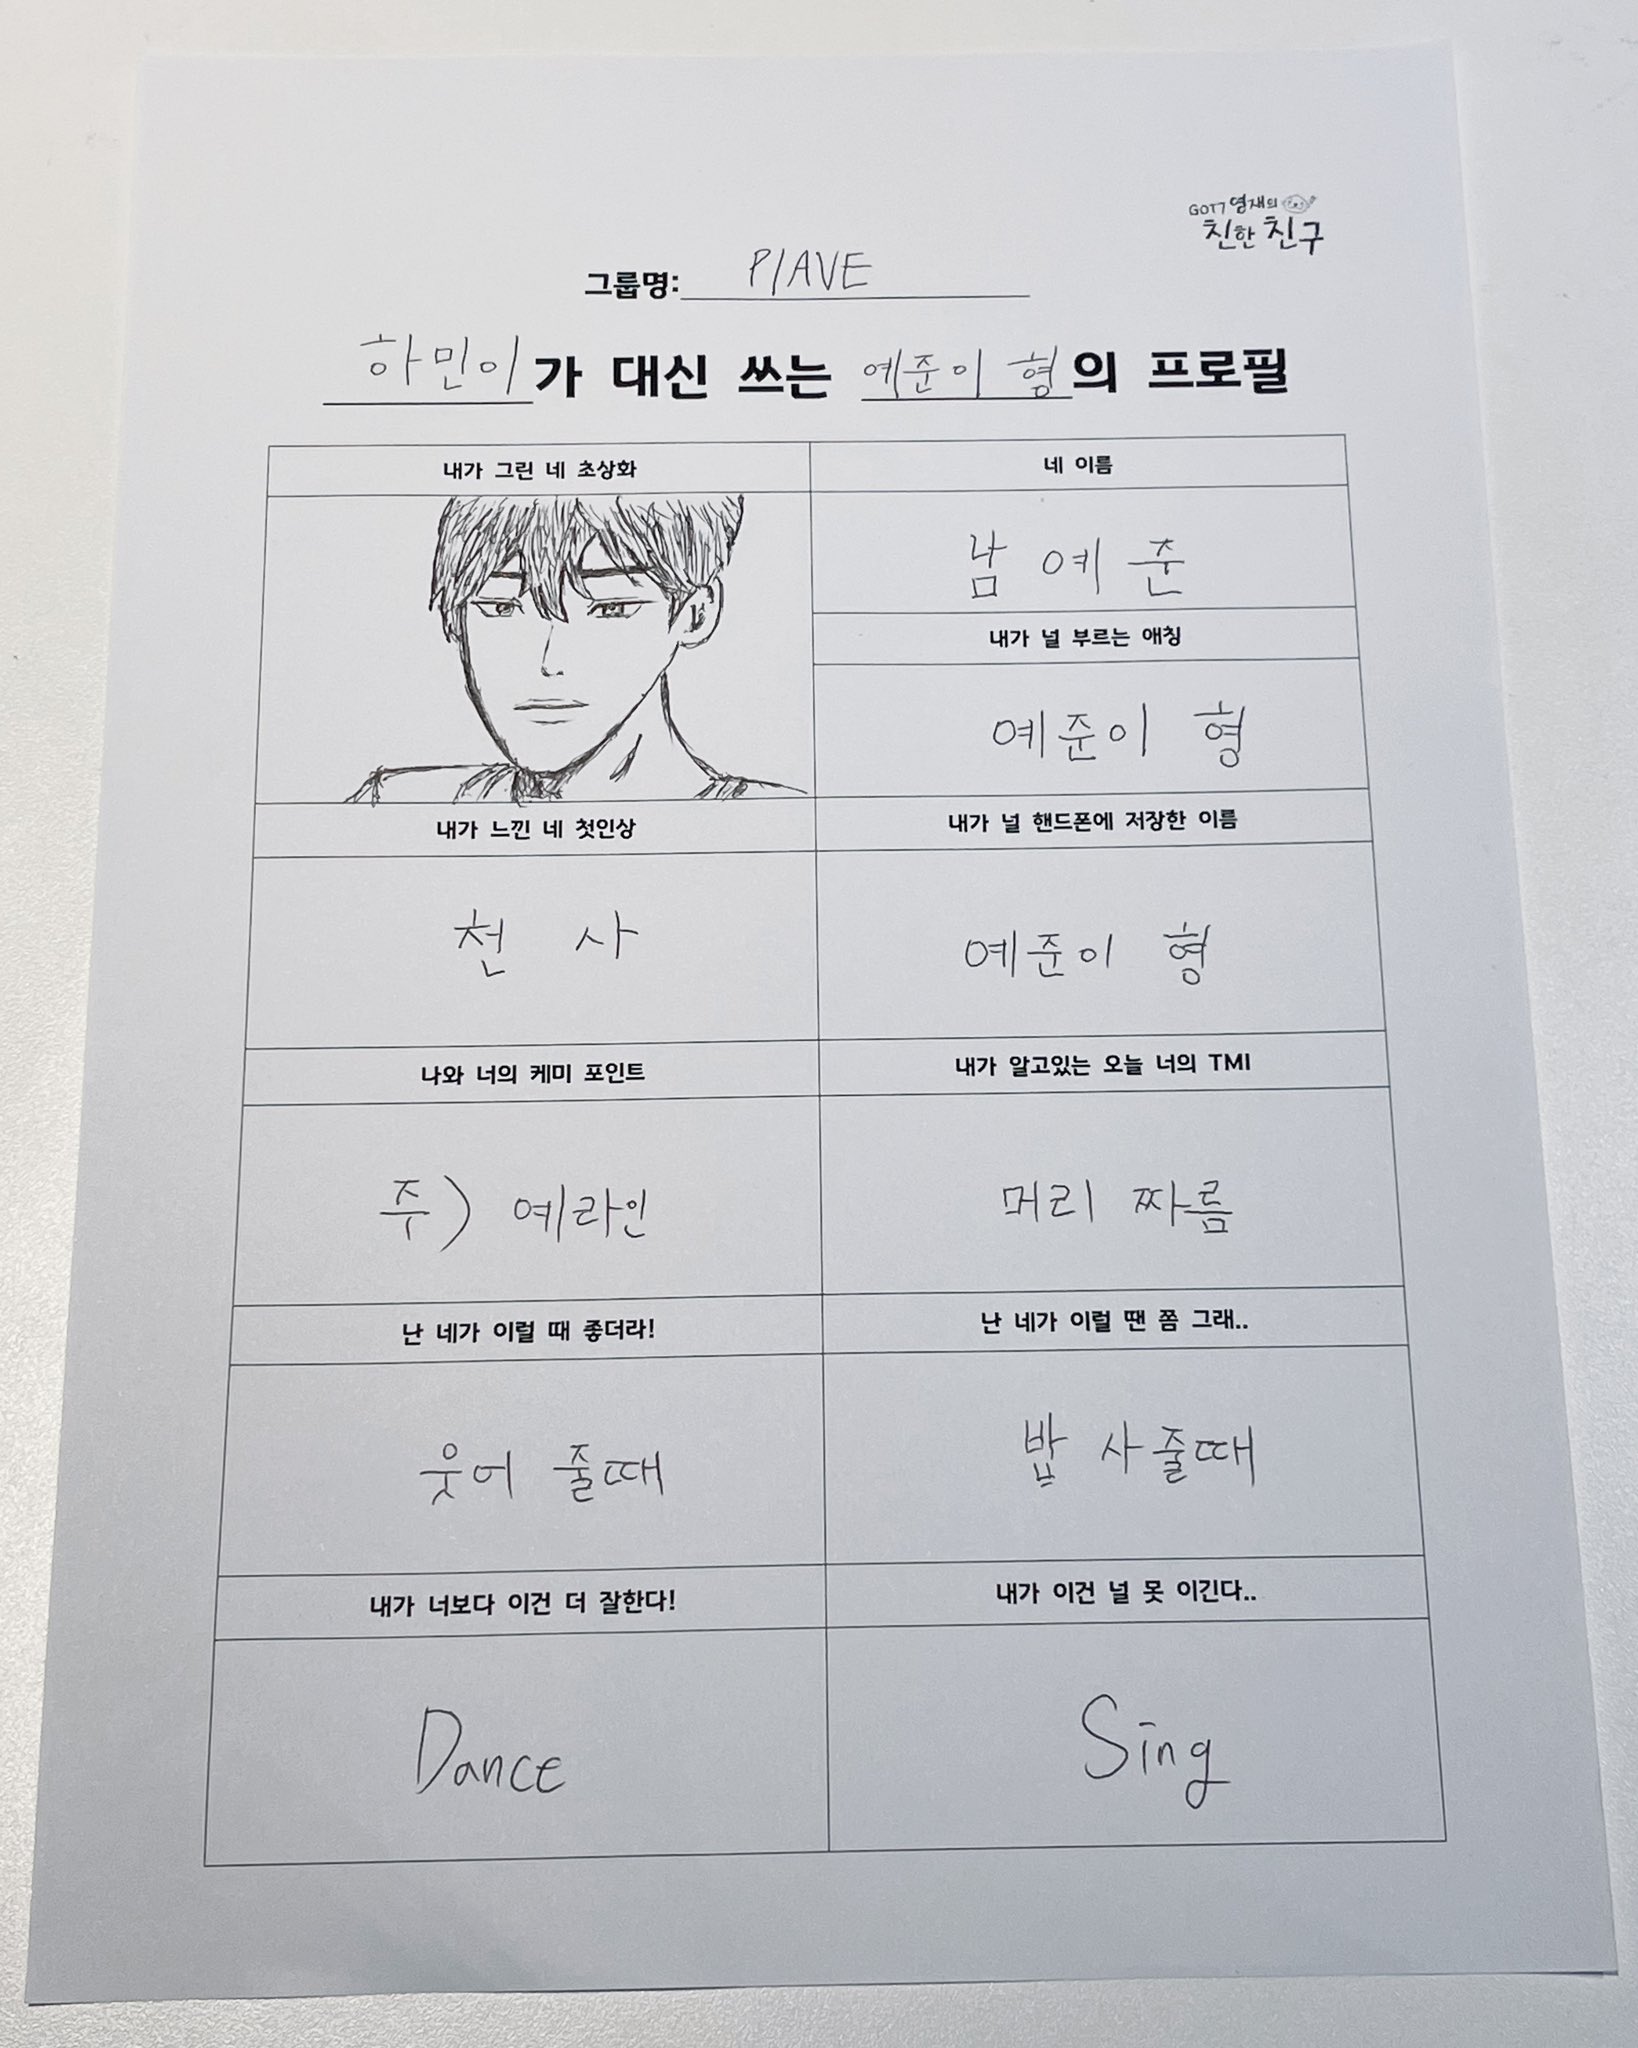 GOT7 영재의
친한 친구
그룹명: PLAVE
하민이가 대신 쓰는 예준이 형의 프로필
내가 그린 네 초상화
네 이름
남예준
내가 널 부르는 애칭
예준이 형
내가 느낀 네 첫인상
내가 널 핸드폰에 저장한 이름
천사
예준이 형
나와 너의 케미 포인트
내가 알고있는 오늘 너의 TMI
주) 예라인
머리 짜름
난 네가 이럴 때 좋더라!
난 네가 이럴 땐 쫌 그래..
웃어 줄때
밥 사줄때
내가 너보다 이건 더 잘한다!
내가 이건 널 못 이긴다..
Dance
Sing